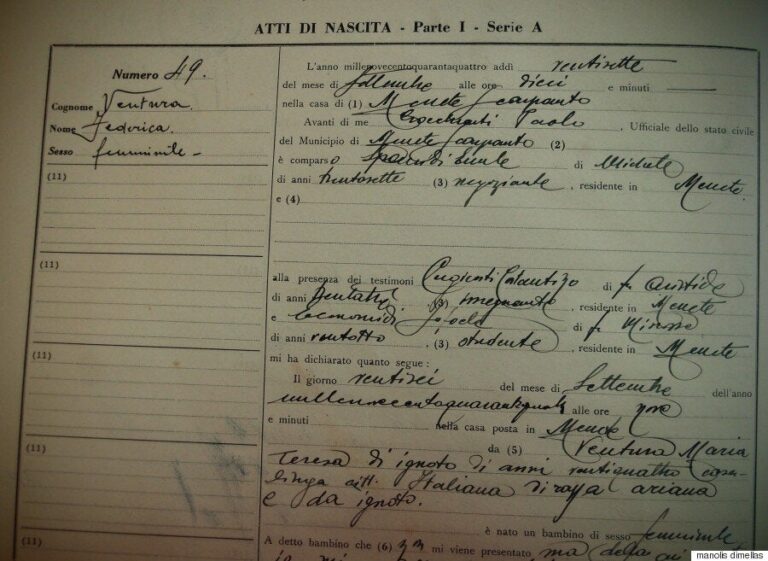 ATTI DI NASCITA - Parte I - Serie A
Numero 49.
Cognome Ventura
Nome Federica.
Sesso femminile -
(11)
(11)
(11)
(11)
(11)
L'anno millenovecentoquarantaquattro addì ventisette
del mese di Settembre alle ore dieci e minuti
nella casa di (1) Menete Carpanto
Avanti di me Paolo, Ufficiale dello stato civile
del Municipio di Menete Carpanto (2)
è comparso di Michele
di anni trentasette (3) negoziante, residente in Menete
e (4)
alla presenza dei testimoni di fu Aristide
di anni (3) insegnante, residente in Menete
e Economidi di fu
di anni ventotto, (3) studente, residente in Menete
mi ha dichiarato quanto segue :
Il giorno ventisei del mese di Settembre dell'anno
millenovecentoquarantaquattro alle ore nove
e minuti nella casa posta in Menete
da (5) Ventura Maria
Teresa di ignoto di anni ventiquattro casa-
linga citt. Italiana di razza ariana
e da ignoto.
è nato un bambino di sesso femminile
A detto bambino che (6) mi viene presentato
manolis dimellas